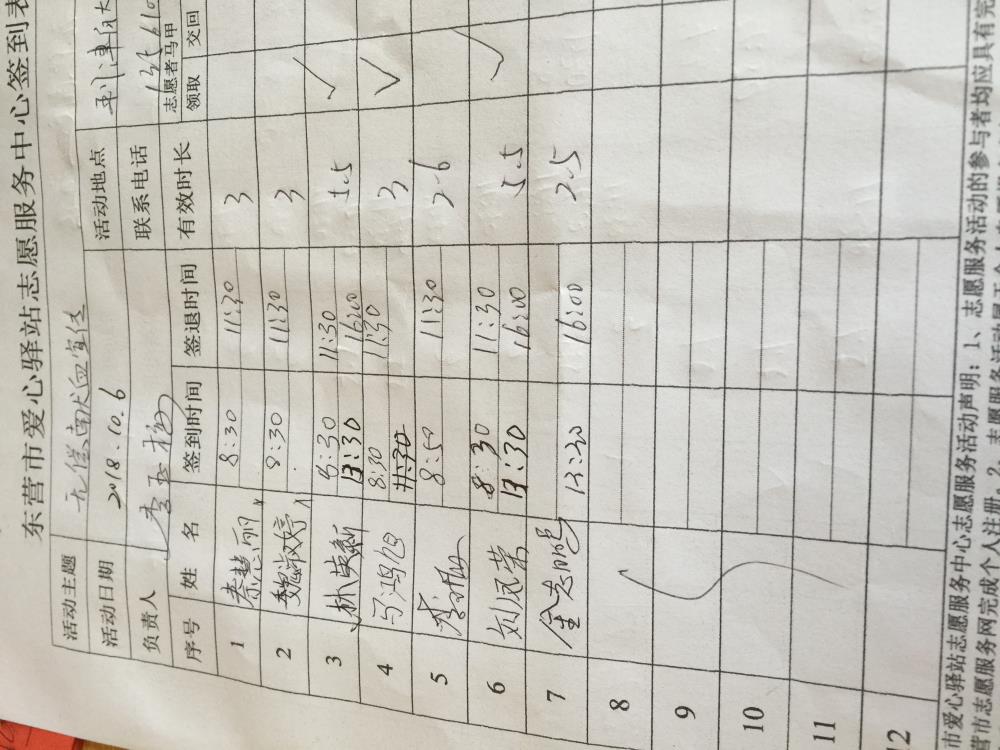 东营市爱心驿站志愿服务中心签到表
活动主题 无偿献血宣传 活动地点
活动日期 2018.10.6 联系电话
负责人 志愿者马甲
序号 姓名 签到时间 签退时间 有效时长 领取 交回
1 秦慧丽 8:30 11:30 3
2 魏淑婷 8:30 11:30 3
3 8:30 11:30 5.5 ✓
13:30 16:00
4 马鸿旭 8:30 11:30 3 ✓
5 8:50 11:30 2.6
6 刘风荣 8:30 11:30 5.5 ✓
13:30 16:00
7 金志明 13:30 16:00 2.5
8
9
10
11
12
市爱心驿站志愿服务中心志愿服务活动声明：1、志愿服务活动的参与者均应具有完
营市志愿服务网完成个人注册。2、志愿服务活动属于